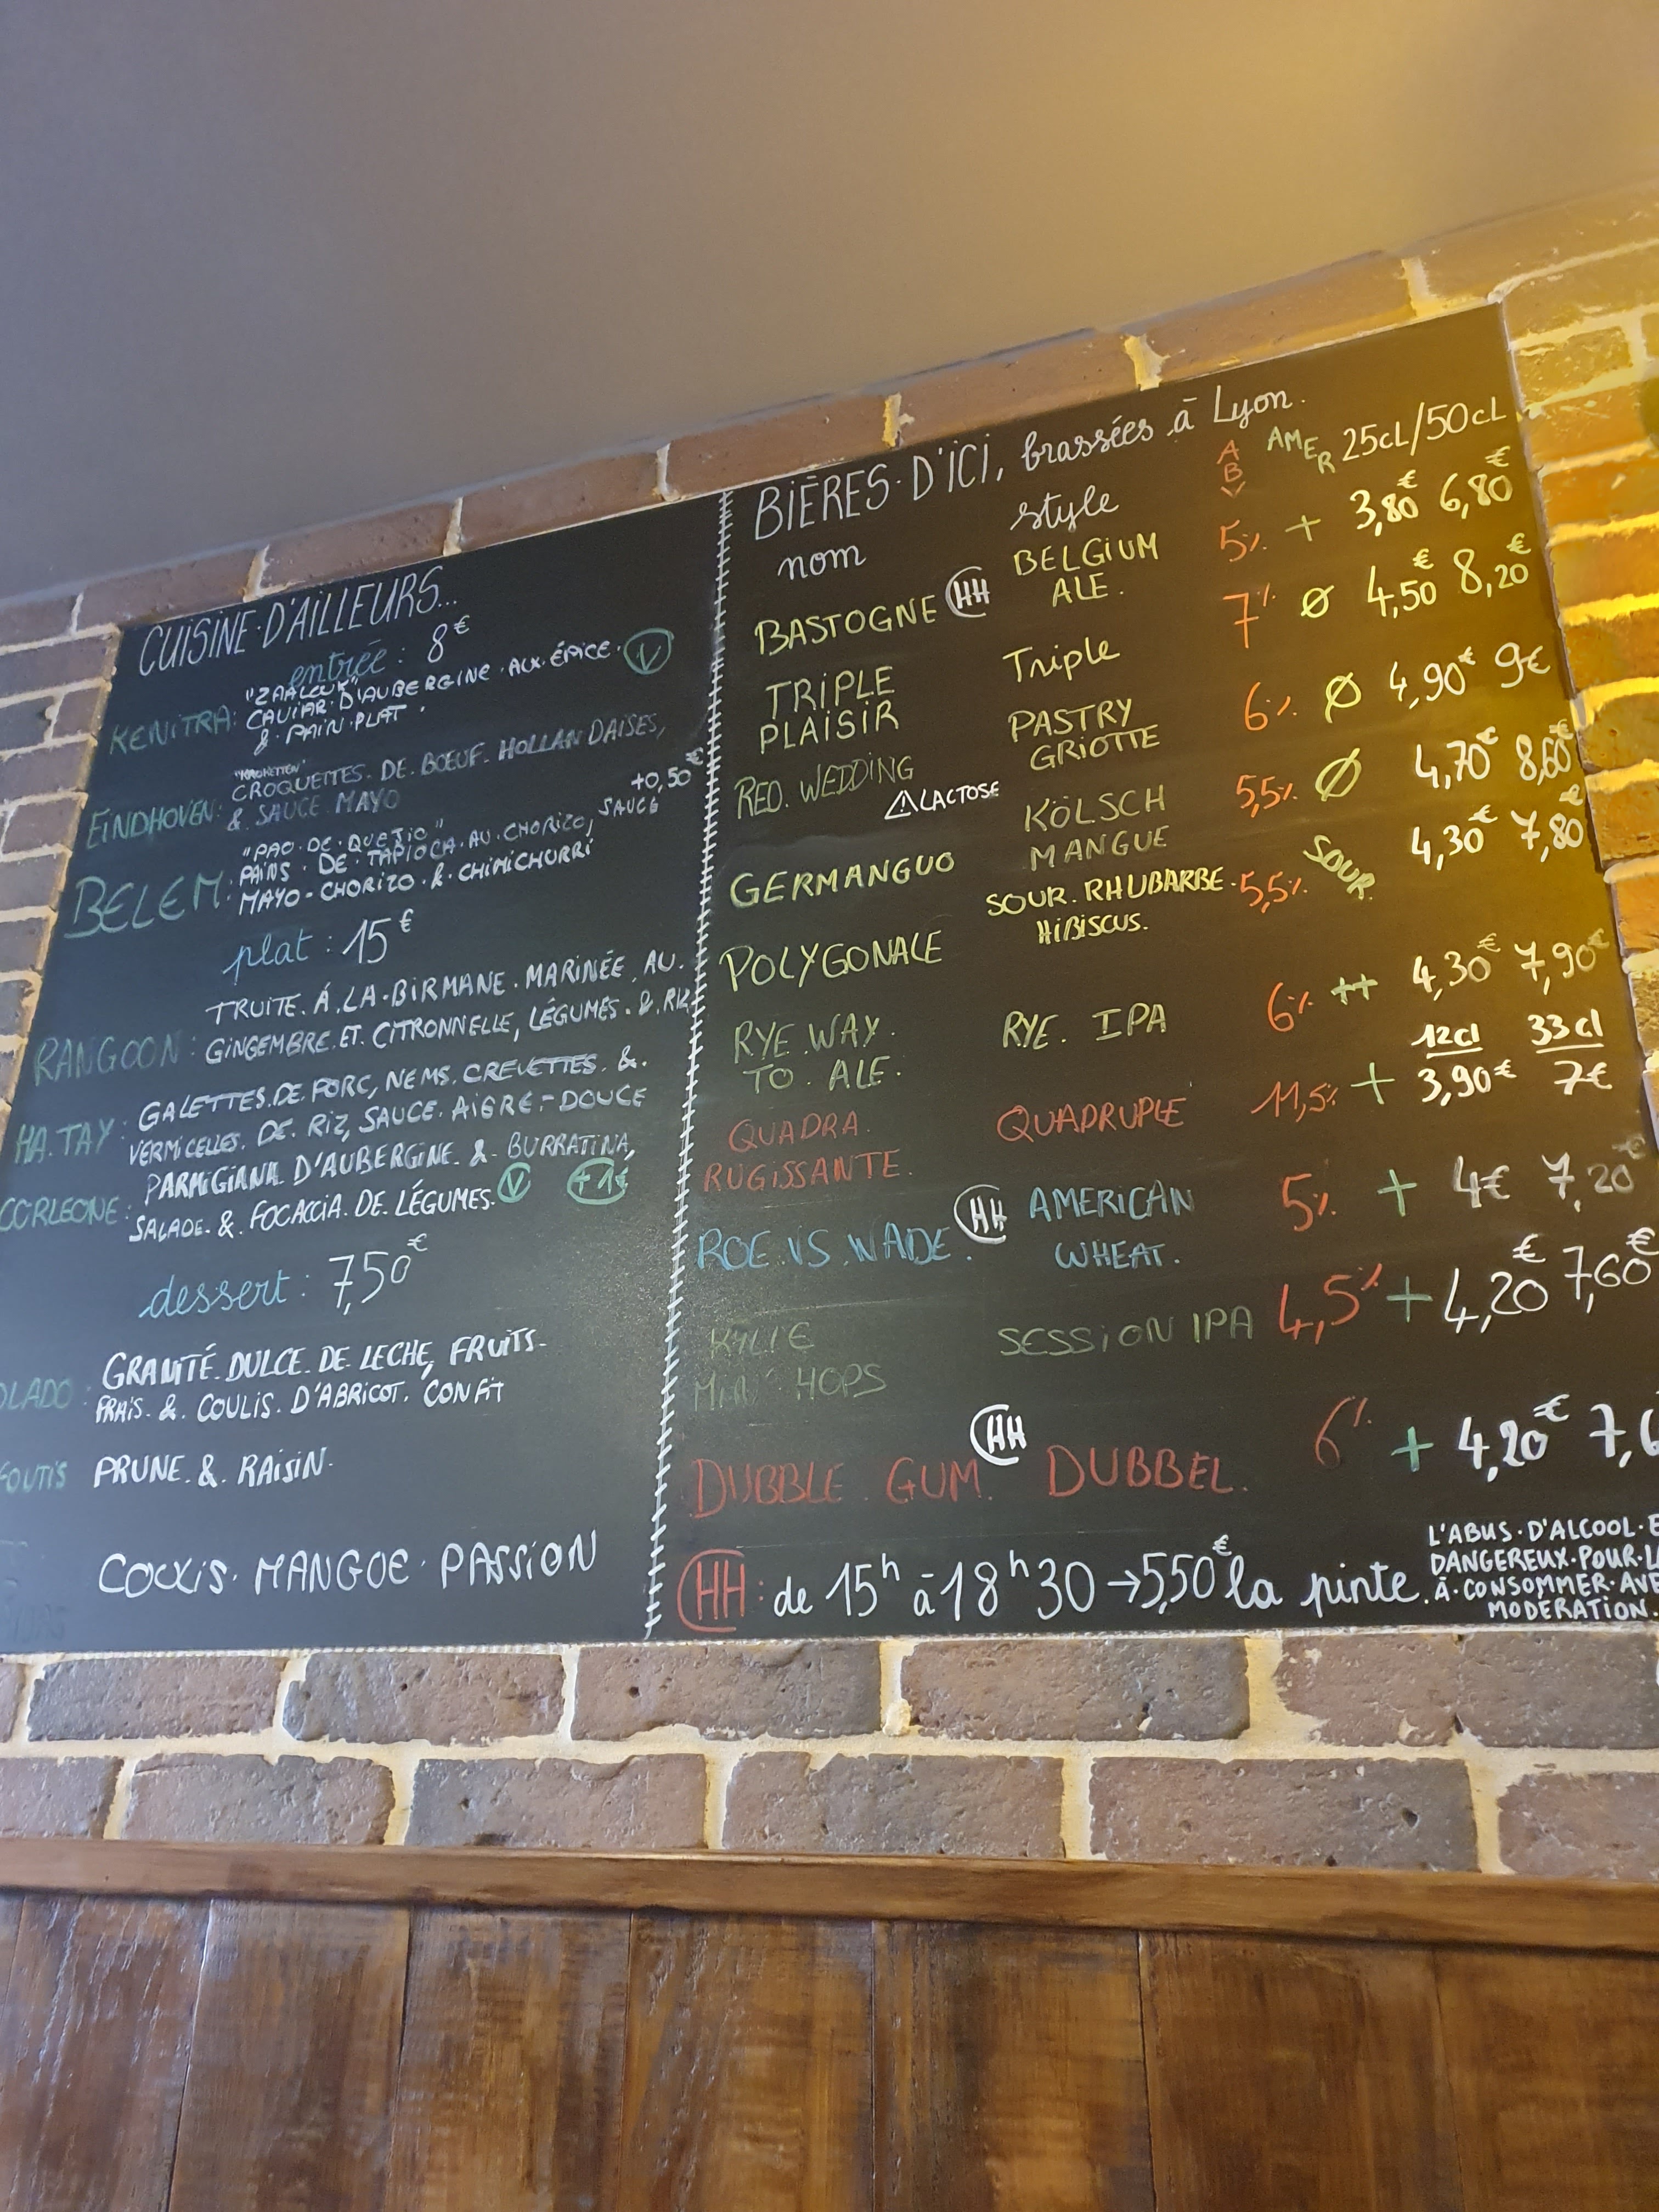 CUISINE·D'AILLEURS...
entrée : 8€
KENITRA: "ZAALOUK"
CAVIAR·D'AUBERGINE·AUX·ÉPICE· V
& PAIN·PLAT·
EINDHOVEN: "KROKETTEN"
CROQUETTES·DE·BOEUF·HOLLANDAISES,
& SAUCE·MAYO
+0,50€
BELEM: "PAO·DE·QUEJIO"
PAINS·DE·TAPIOCA·AU·CHORIZO, SAUCE
MAYO-CHORIZO·&·CHIMICHURRI
plat : 15€
RANGOON: TRUITE·À·LA·BIRMANE·MARINÉE·AU·
GINGEMBRE·ET·CITRONNELLE, LÉGUMES·&·RIZ
HA.TAY: GALETTES·DE·PORC, NEMS·CREVETTES·&·
VERMICELLES·DE·RIZ, SAUCE·AIGRE-DOUCE
CORLEONE: PARMIGIANA D'AUBERGINE·&·BURRATINA,
SALADE·&·FOCACCIA·DE·LÉGUMES· V +1€
dessert : 7,50€
OLADO: GRANITÉ·DULCE·DE·LECHE, FRUITS·
FRAIS·&·COULIS·D'ABRICOT·CONFIT
FOUTIS PRUNE·&·RAISIN·
MANGUE·PASSION
BIÈRES·D'ICI, brassées à Lyon.
nom style ABV AMER 25cL/50cL
BASTOGNE HH BELGIUM ALE. 5% + 3,80€ 6,80€
TRIPLE PLAISIR Triple 7% Ø 4,50€ 8,20€
RED·WEDDING PASTRY GRIOTTE 6% Ø 4,90€ 9€
⚠LACTOSE
GERMANGUO KÖLSCH MANGUE 5,5% Ø 4,70€ 8,60€
POLYGONALE SOUR·RHUBARBE· HIBISCUS. 5,5% SOUR 4,30€ 7,80€
RYE·WAY· TO·ALE· RYE·IPA 6% ++ 4,30€ 7,90€
12cl 33cl
QUADRA· RUGISSANTE. QUADRUPLE 11,5% + 3,90€ 7€
ROE·VS·WADE. HH AMERICAN WHEAT. 5% + 4€ 7,20€
KYLIE MIN' HOPS SESSION IPA 4,5% + 4,20€ 7,60€
DUBBLE·GUM HH DUBBEL. 6% + 4,20€ 7,6
HH: de 15h à 18h30 →5,50€ la pinte.
L'ABUS·D'ALCOOL·E
DANGEREUX·POUR·L
À·CONSOMMER·AVE
MODERATION.